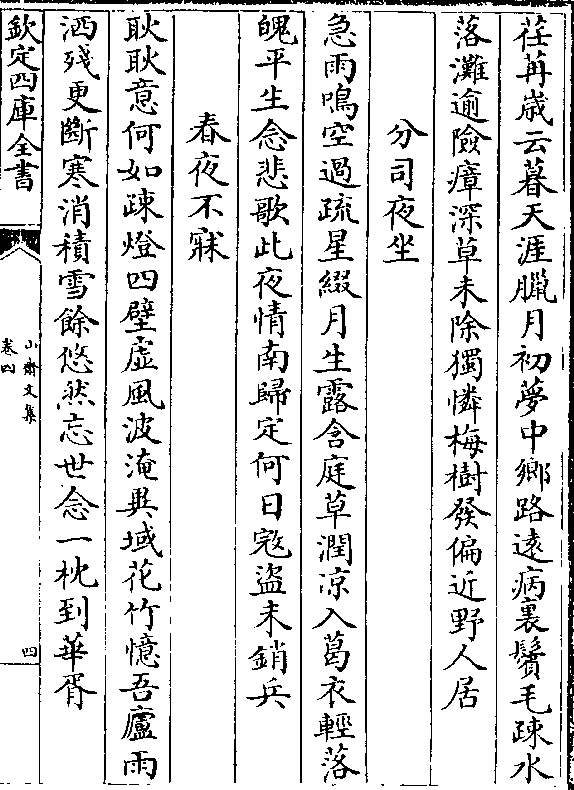 荏苒歳云暮天涯臘月初夢中鄉路遠病裏鬢毛踈水
落灘逾險瘴深草未除獨憐梅樹發偏近野人居
分司夜坐
急雨鳴空過疏星綴月生露含庭草潤凉入葛衣輕落
魄平生念悲歌此夜情南歸定何日宼盜未銷兵
春夜不寐
耿耿意何如踈燈四壁虛風波淹異域花竹憶吾廬雨
洒殘更斷寒消積雪餘悠然忘世念一枕到華胥
欽定四庫全書
小齋文集
卷四
四